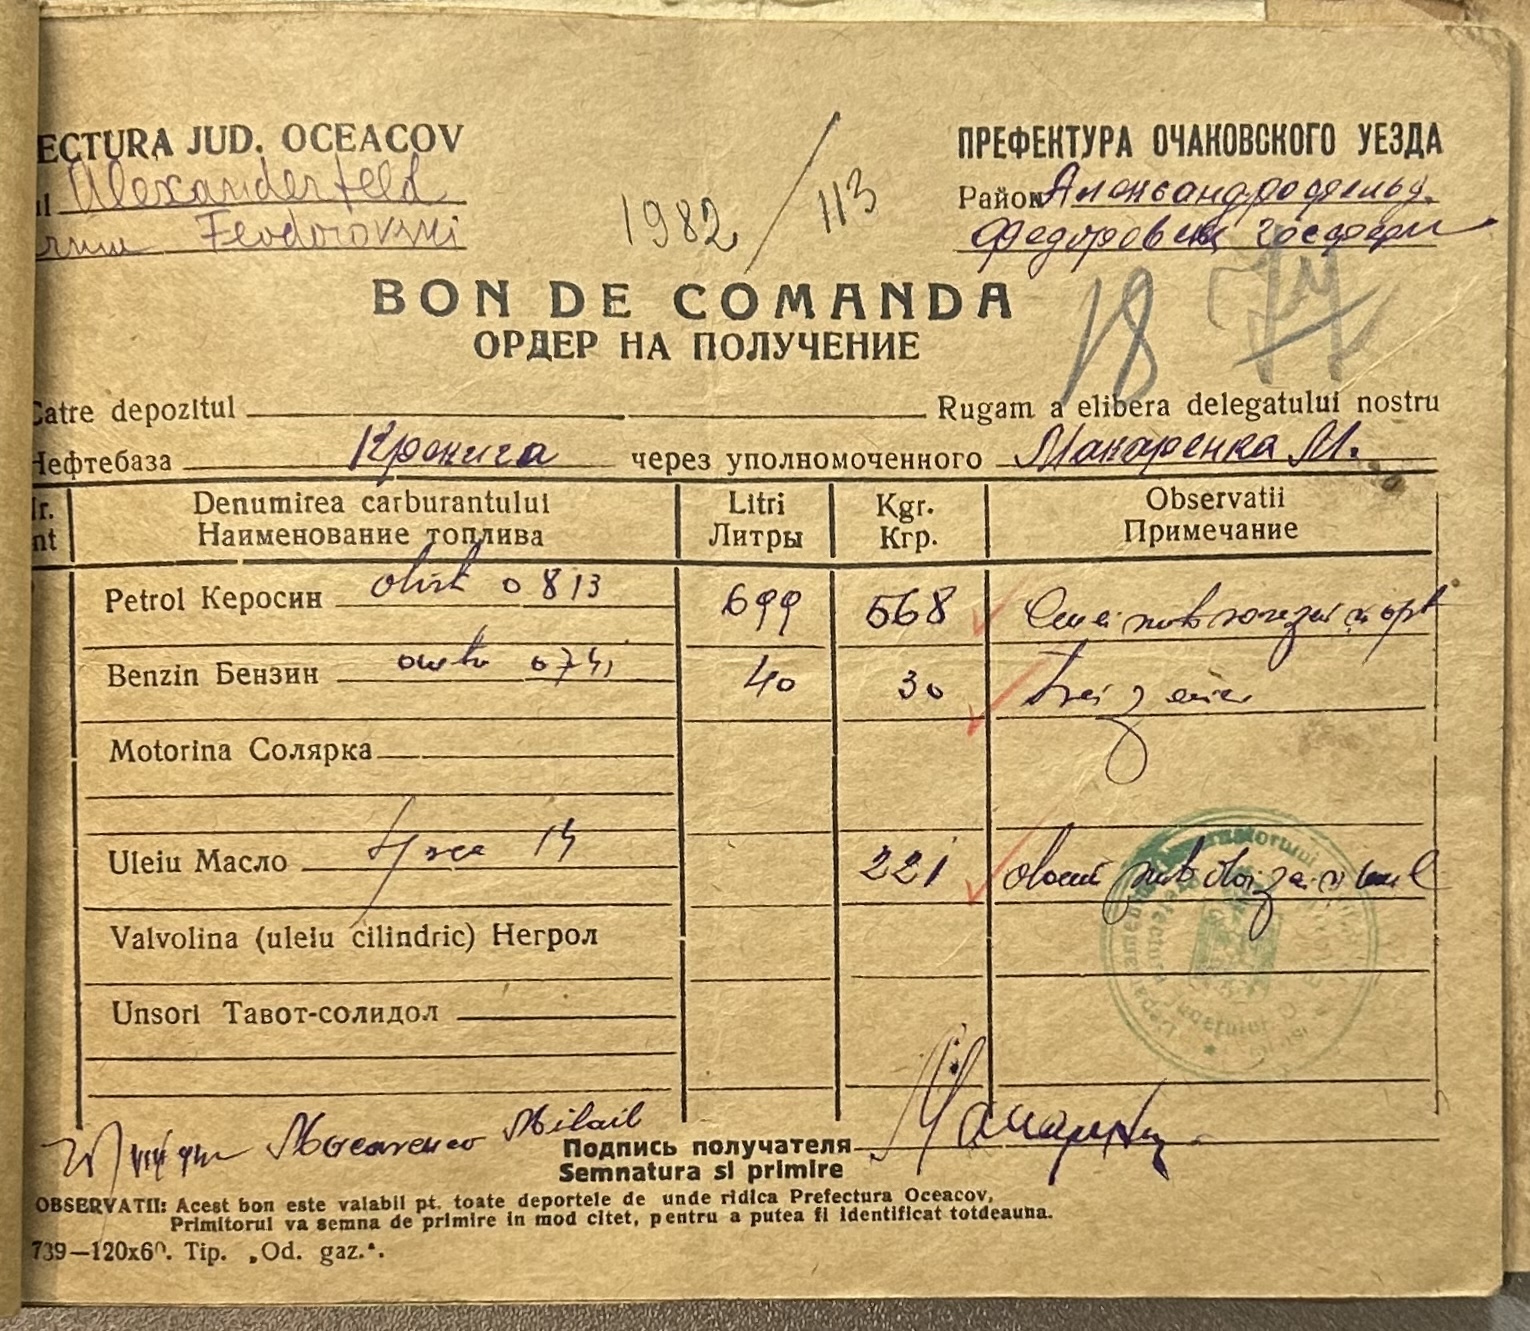 ECTURA JUD. OCEACOV
Alexanderfeld
Feodorovski
1982/113
ПРЕФЕКТУРА ОЧАКОВСКОГО УЕЗДА
Район Александрофельд.
Федоровский госферм
18
BON DE COMANDA
ОРДЕР НА ПОЛУЧЕНИЕ
Catre depozitul Rugam a elibera delegatului nostru
Нефтебаза через уполномоченного Макаренка М.
Denumirea carburantului Litri Kgr. Observatii
Наименование топлива Литры Кгр. Примечание
Petrol Керосин 0813 699 568
Benzin Бензин 40 30 treizeci
Motorina Солярка
Uleiu Масло 221
Valvolina (uleiu cilindric) Негрол
Unsori Тавот-солидол
Mocarenco Mihail
Подпись получателя
Semnatura si primire
OBSERVATII: Acest bon este valabil pt. toate deportele de unde ridica Prefectura Oceacov,
Primitorul va semna de primire in mod citet, pentru a putea fi identificat totdeauna.
739—120x60. Tip. „Od. gaz.“.